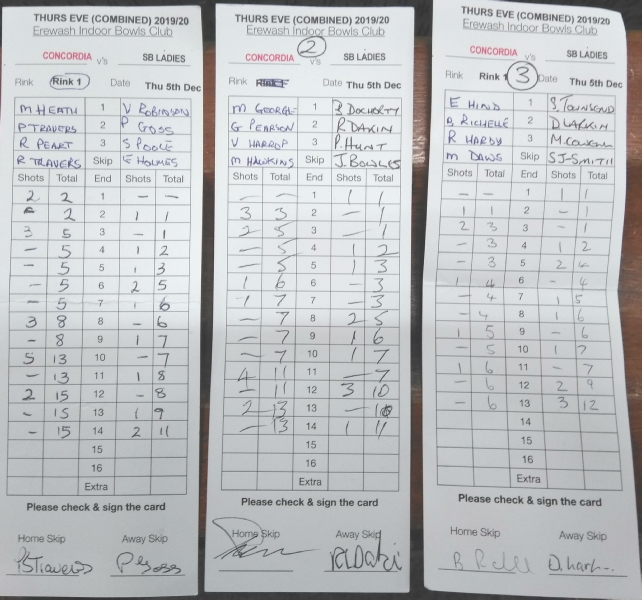 THURS EVE (COMBINED) 2019/20
Erewash Indoor Bowls Club
CONCORDIA v's SB LADIES
Rink Rink 1 Date Thu 5th Dec
M HEATH 1 V ROBINSON
P TRAVERS 2 P GOSS
R PEART 3 S POOLE
R TRAVERS Skip E HOLMES
Shots Total End Shots Total
2 2 1 - -
- 2 2 1 1
3 5 3 - 1
- 5 4 1 2
- 5 5 1 3
- 5 6 2 5
- 5 7 1 6
3 8 8 - 6
- 8 9 1 7
5 13 10 - 7
- 13 11 1 8
2 15 12 - 8
- 15 13 1 9
- 15 14 2 11
15
16
Extra
Please check & sign the card
Home Skip Away Skip
PGoss
THURS EVE (COMBINED) 2019/20
Erewash Indoor Bowls Club
2
CONCORDIA v's SB LADIES
Rink Date Thu 5th Dec
M GEORGE 1 B DOCHERTY
G PEARSON 2 R DAKIN
V HARROP 3 P HUNT
M HAWKINS Skip J BOWLES
Shots Total End Shots Total
- - 1 1 1
3 3 2 - 1
2 5 3 - 1
- 5 4 1 2
- 5 5 1 3
1 6 6 - 3
1 7 7 - 3
- 7 8 2 5
- 7 9 1 6
- 7 10 1 7
4 11 11 - 7
- 11 12 3 10
2 13 13 - 10
- 13 14 1 11
15
16
Extra
Please check & sign the card
Home Skip Away Skip
THURS EVE (COMBINED) 2019/20
Erewash Indoor Bowls Club
CONCORDIA v's SB LADIES
Rink Rink 3 Date Thu 5th Dec
E HIND 1 S TOWNSEND
B RICHELLE 2 D LARKIN
R HARDY 3
M DAWS Skip SJ-SMITH
Shots Total End Shots Total
- - 1 1 1
1 1 2 - 1
2 3 3 - 1
- 3 4 1 2
- 3 5 2 4
1 4 6 - 4
- 4 7 1 5
- 4 8 1 6
1 5 9 - 6
- 5 10 1 7
1 6 11 - 7
- 6 12 2 9
- 6 13 3 12
14
15
16
Extra
Please check & sign the card
Home Skip Away Skip